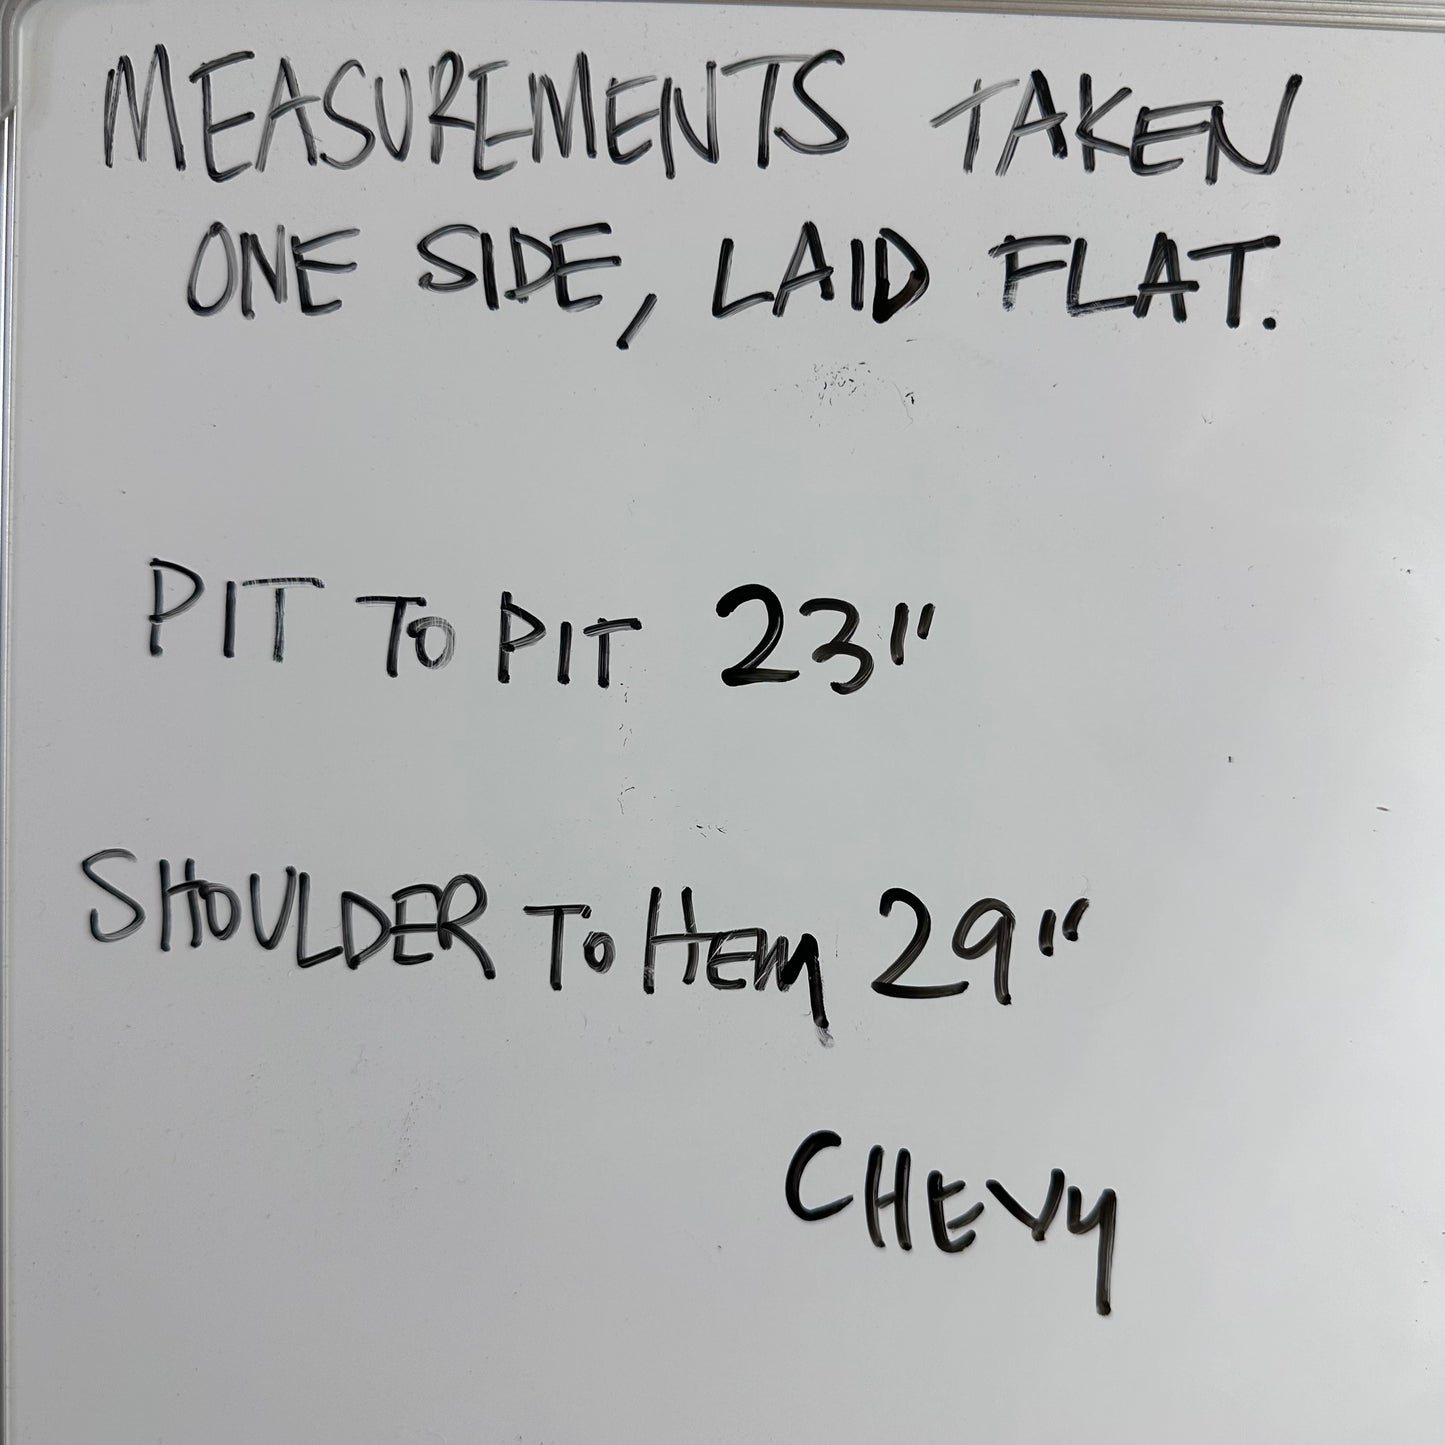 MEASUREMENTS TAKEN
ONE SIDE, LAID FLAT.
PIT TO PIT 23"
SHOULDER TO HEM 29"
CHEVY